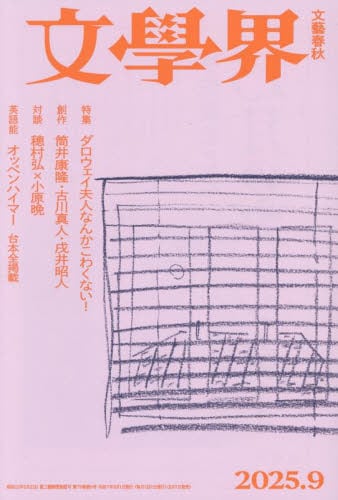 文學界
文藝春秋
特集 ダロウェイ夫人なんかこわくない！
創作 筒井康隆・古川真人・戌井昭人
対談 穂村弘×小原晩
英語能 オッペンハイマー 台本全掲載
2025.9